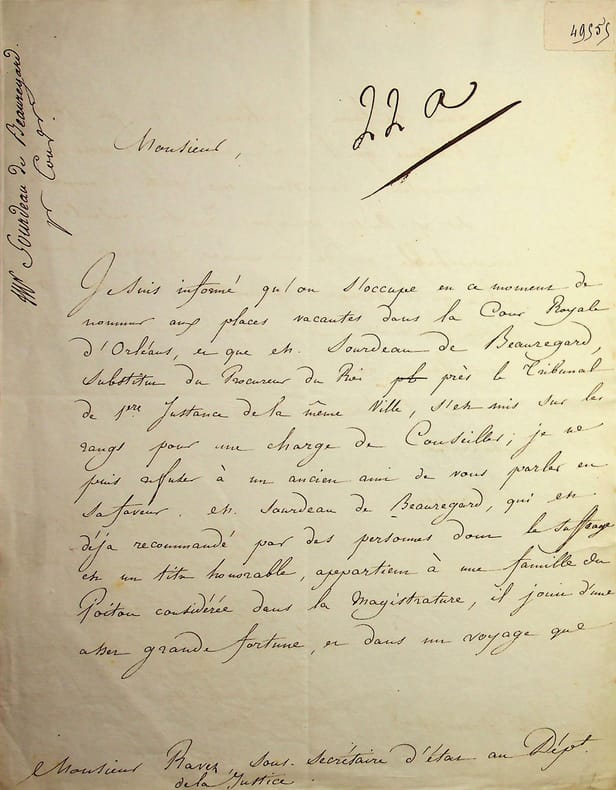 49555
22 a
Mr Sourdeau de Beauregard.
pr Cons.er
Monsieur,
Je suis informé qu'on s'occupe en ce moment de
nommer aux places vacantes dans la Cour Royale
d'Orléans, et que M. Sourdeau de Beauregard,
Substitut du Procureur du Roi près le Tribunal
de 1ere Instance de la même Ville, s'est mis sur les
rangs pour une charge de Conseiller; je ne
puis refuser à un ancien ami de vous parler en
sa faveur. M. Sourdeau de Beauregard, qui est
déja recommandé par des personnes dont le suffrage
est un titre honorable, appartient à une famille du
Poitou considérée dans la Magistrature, il jouit d'une
assez grande fortune, et dans un voyage que
Monsieur Ravez, sous-secrétaire d'état au Dépt.
de la Justice.